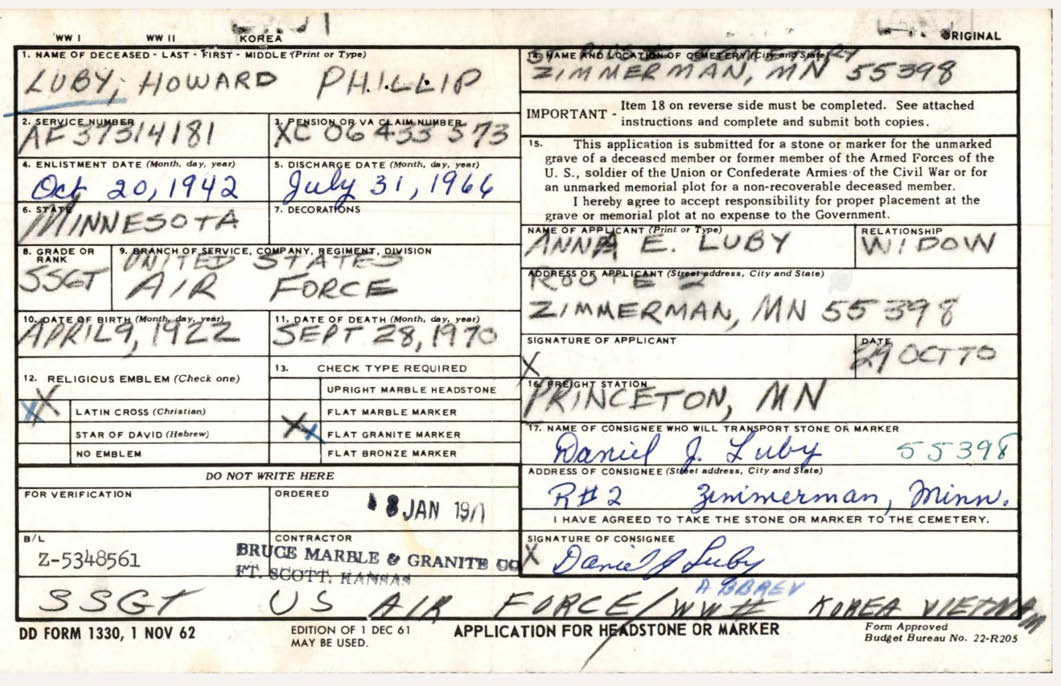 WW I WW II KOREA ORIGINAL
1. NAME OF DECEASED - LAST - FIRST - MIDDLE (Print or Type)
LUBY, HOWARD PHILLIP
2. SERVICE NUMBER
AF 37314181
3. PENSION OR VA CLAIM NUMBER
XC 06 433 573
4. ENLISTMENT DATE (Month, day, year)
Oct 20, 1942
5. DISCHARGE DATE (Month, day, year)
July 31, 1966
6. STATE
MINNESOTA
7. DECORATIONS
8. GRADE OR
RANK
SSGT
9. BRANCH OF SERVICE, COMPANY, REGIMENT, DIVISION
UNITED STATES
AIR FORCE
10. DATE OF BIRTH (Month, day, year)
APRIL 9, 1922
11. DATE OF DEATH (Month, day, year)
SEPT 28, 1970
12. RELIGIOUS EMBLEM (Check one)
XX LATIN CROSS (Christian)
STAR OF DAVID (Hebrew)
NO EMBLEM
13. CHECK TYPE REQUIRED
UPRIGHT MARBLE HEADSTONE
FLAT MARBLE MARKER
XX FLAT GRANITE MARKER
FLAT BRONZE MARKER
DO NOT WRITE HERE
FOR VERIFICATION
ORDERED
18 JAN 1971
B/L
Z-5348561
CONTRACTOR
BRUCE MARBLE & GRANITE CO
FT. SCOTT, KANSAS
14. NAME AND LOCATION OF CEMETERY (City and State)
ZIMMERMAN, MN 55398
IMPORTANT - Item 18 on reverse side must be completed. See attached
instructions and complete and submit both copies.
15. This application is submitted for a stone or marker for the unmarked
grave of a deceased member or former member of the Armed Forces of the
U. S., soldier of the Union or Confederate Armies of the Civil War or for
an unmarked memorial plot for a non-recoverable deceased member.
I hereby agree to accept responsibility for proper placement at the
grave or memorial plot at no expense to the Government.
NAME OF APPLICANT (Print or Type)
ANNA E. LUBY
RELATIONSHIP
WIDOW
ADDRESS OF APPLICANT (Street address, City and State)
ROUTE 2
ZIMMERMAN, MN 55398
SIGNATURE OF APPLICANT
X
DATE
29 OCT 70
16. FREIGHT STATION
PRINCETON, MN
17. NAME OF CONSIGNEE WHO WILL TRANSPORT STONE OR MARKER
Daniel J. Luby 55398
ADDRESS OF CONSIGNEE (Street address, City and State)
R#2 Zimmerman, Minn.
I HAVE AGREED TO TAKE THE STONE OR MARKER TO THE CEMETERY.
SIGNATURE OF CONSIGNEE
X Daniel J Luby
ABBREV
SSGT US AIR FORCE/WW II KOREA VIETNAM
DD FORM 1330, 1 NOV 62
EDITION OF 1 DEC 61
MAY BE USED.
APPLICATION FOR HEADSTONE OR MARKER
Form Approved
Budget Bureau No. 22-R205